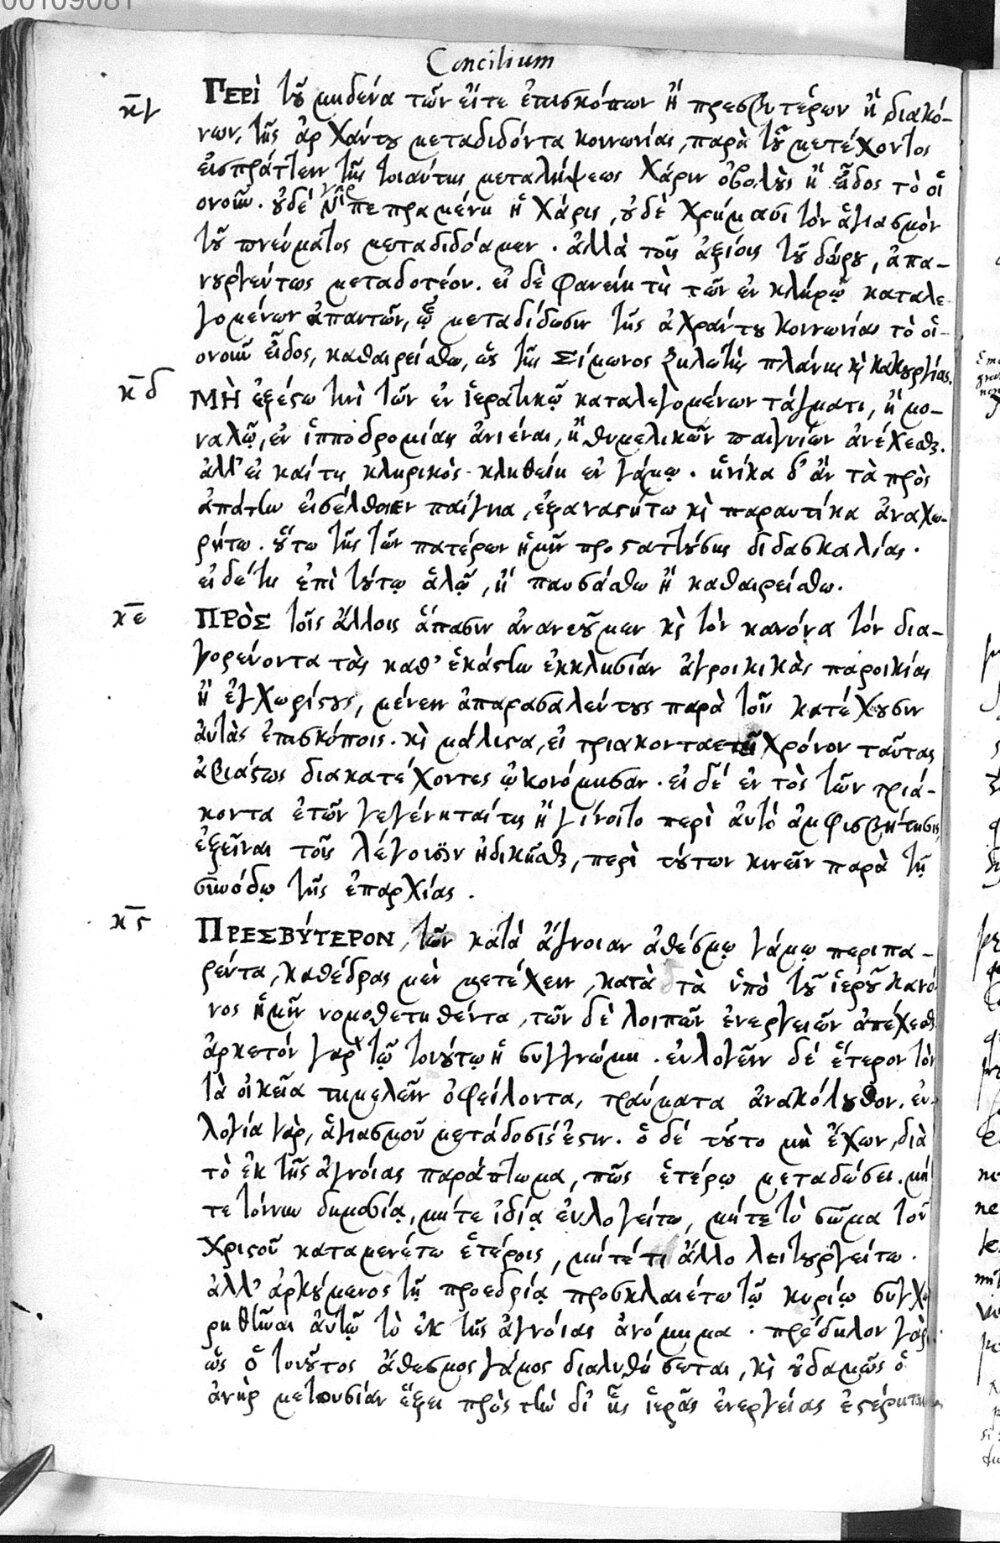 00109081
Concilium
κγ ΠΕΡῚ τοῦ μηδένα τῶν εἴτε ἐπισκόπων ἢ πρεσβυτέρων ἢ διακό-
νων, τῆς ἀχράντου μεταδιδόντα κοινωνίας, παρὰ τοῦ μετέχοντος
εἰσπράττειν τῆς τοιαύτης μεταλήψεως χάριν ὀβολοὺς ἢ εἶδος τὸ οἱ
ονοῦν. οὐδὲ γὰρ πεπραμένη ἡ χάρις, οὐδὲ χρήμασι τὸν ἁγιασμὸν
τοῦ πνεύματος μεταδιδόαμεν. ἀλλὰ τοῖς ἀξίοις τοῦ δώρου, ἀπα-
νουργεύτως μεταδοτέον. εἰ δὲ φανείη τὶς τῶν ἐν κλήρῳ καταλε-
γομένων ἀπαιτῶν, ᾧ μεταδίδωσιν τῆς ἀχράντου κοινωνίας τὸ οἱ-
ονοῦν εἶδος, καθαιρείσθω, ὡς τῆς Σίμωνος ζηλωτὴς πλάνης καὶ κακουργίας.
κδ ΜῊ ἐξέστω τινὶ τῶν ἐν ἱερατικῷ καταλεγομένων τάγματι, ἢ μο-
ναχῷ, ἐν ἱπποδρομίαις ἀνιέναι, ἢ θυμελικῶν παιγνίων ἀνέχεσθαι.
ἀλλ' εἰ καί τις κληρικὸς κληθείη ἐν γάμῳ. ἡνίκα δ' ἂν τὰ πρὸς
ἀπάτην εἰσέλθοιεν παίγνια, ἐξαναστήτω καὶ παραυτίκα ἀναχω-
ρήτω. οὕτω τῆς τῶν πατέρων ἡμῖν προστατούσης διδασκαλίας.
εἰ δέ τις ἐπὶ τούτῳ ἁλῷ, ἢ παυσάσθω ἢ καθαιρείσθω.
κε ΠΡῸΣ τοῖς ἄλλοις ἅπασιν ἀνανεοῦμεν καὶ τὸν κανόνα τὸν δια-
γορεύοντα τὰς καθ' ἑκάστην ἐκκλησίαν ἀγροικικὰς παροικίας
ἢ ἐγχωρίους, μένειν ἀπαρασαλεύτους παρὰ τοῖς κατέχουσιν
αὐτὰς ἐπισκόποις. καὶ μάλιστα, εἰ τριακονταετῆ χρόνον ταύτας
ἀβιάστως διακατέχοντες ᾠκονόμησαν. εἰ δὲ ἐντὸς τῶν τριά-
κοντα ἐτῶν γεγένηταί τις ἢ γένοιτο περὶ αὐτῶ ἀμφισβήτησις,
ἐξεῖναι τοῖς λέγουσιν ἠδικῆσθαι, περὶ τούτων κινεῖν παρὰ τῇ
συνόδῳ τῆς ἐπαρχίας.
κϛ ΠΡΕΣΒΎΤΕΡΟΝ, τὸν κατὰ ἄγνοιαν ἀθέσμῳ γάμῳ περιπα-
ρέντα, καθέδρας μὲν μετέχειν, κατὰ τὰ ὑπὸ τοῦ ἱεροῦ κανό
νος ἡμῖν νομοθετηθέντα, τῶν δὲ λοιπῶν ἐνεργειῶν ἀπέχεσθαι
ἀρκετὸν γὰρ τῷ τοιούτῳ ἡ συγγνώμη. εὐλογεῖν δὲ ἕτερον τὸν
τὰ οἰκεῖα τημελεῖν ὀφείλοντα, τραύματα ἀνακόλουθον. εὐ-
λογία γὰρ, ἁγιασμοῦ μετάδοσίς ἐστιν. ὁ δὲ τοῦτο μὴ ἔχων, διὰ
τὸ ἐκ τῆς ἀγνοίας παράπτωμα, πῶς ἑτέρῳ μεταδώσει. μή
τε τοίνυν δημοσίᾳ, μήτε ἰδίᾳ εὐλογείτω, μήτε τὸ σῶμα τοῦ
χριστοῦ κατανεμέτω ἑτέροις, μήτέ τι ἄλλο λειτουργείτω.
ἀλλ' ἀρκούμενος τῇ προεδρίᾳ προσκλαιέτω τῷ κυρίῳ συγχω
ρηθῆναι αὐτῷ τὸ ἐκ τῆς ἀγνοίας ἀνόμημα. πρόδηλον γὰρ
ὡς ὁ τοιοῦτος ἄθεσμος γάμος διαλυθήσεται, καὶ οὐδαμῶς ὁ
ἀνὴρ μετουσίαν ἕξει πρὸς τὴν δι' ἧς ἱερᾶς ἐνεργείας ἐστέρηται